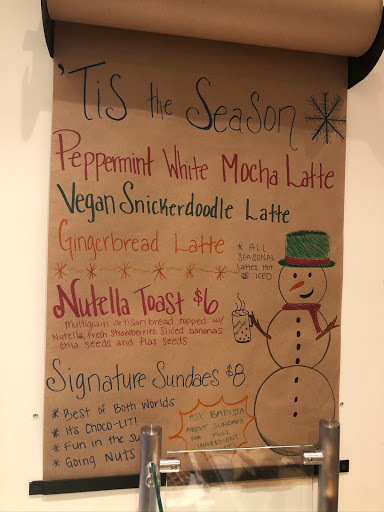 'Tis the Season
Peppermint White Mocha Latte
Vegan Snickerdoodle Latte
Gingerbread Latte
* ALL
SEASONAL
Lattes HOT
or ICED
Nutella Toast $6
multigrain artisan bread topped w/
Nutella, fresh strawberries, sliced bananas
chia seeds and flax seeds
Signature Sundaes $8
* Best of Both Worlds
* It's CHOCO-LIT!
* Fun in the
* Going Nuts
ASK BARISTA
ABOUT SUNDAES
FOR FULL
INGREDIENT